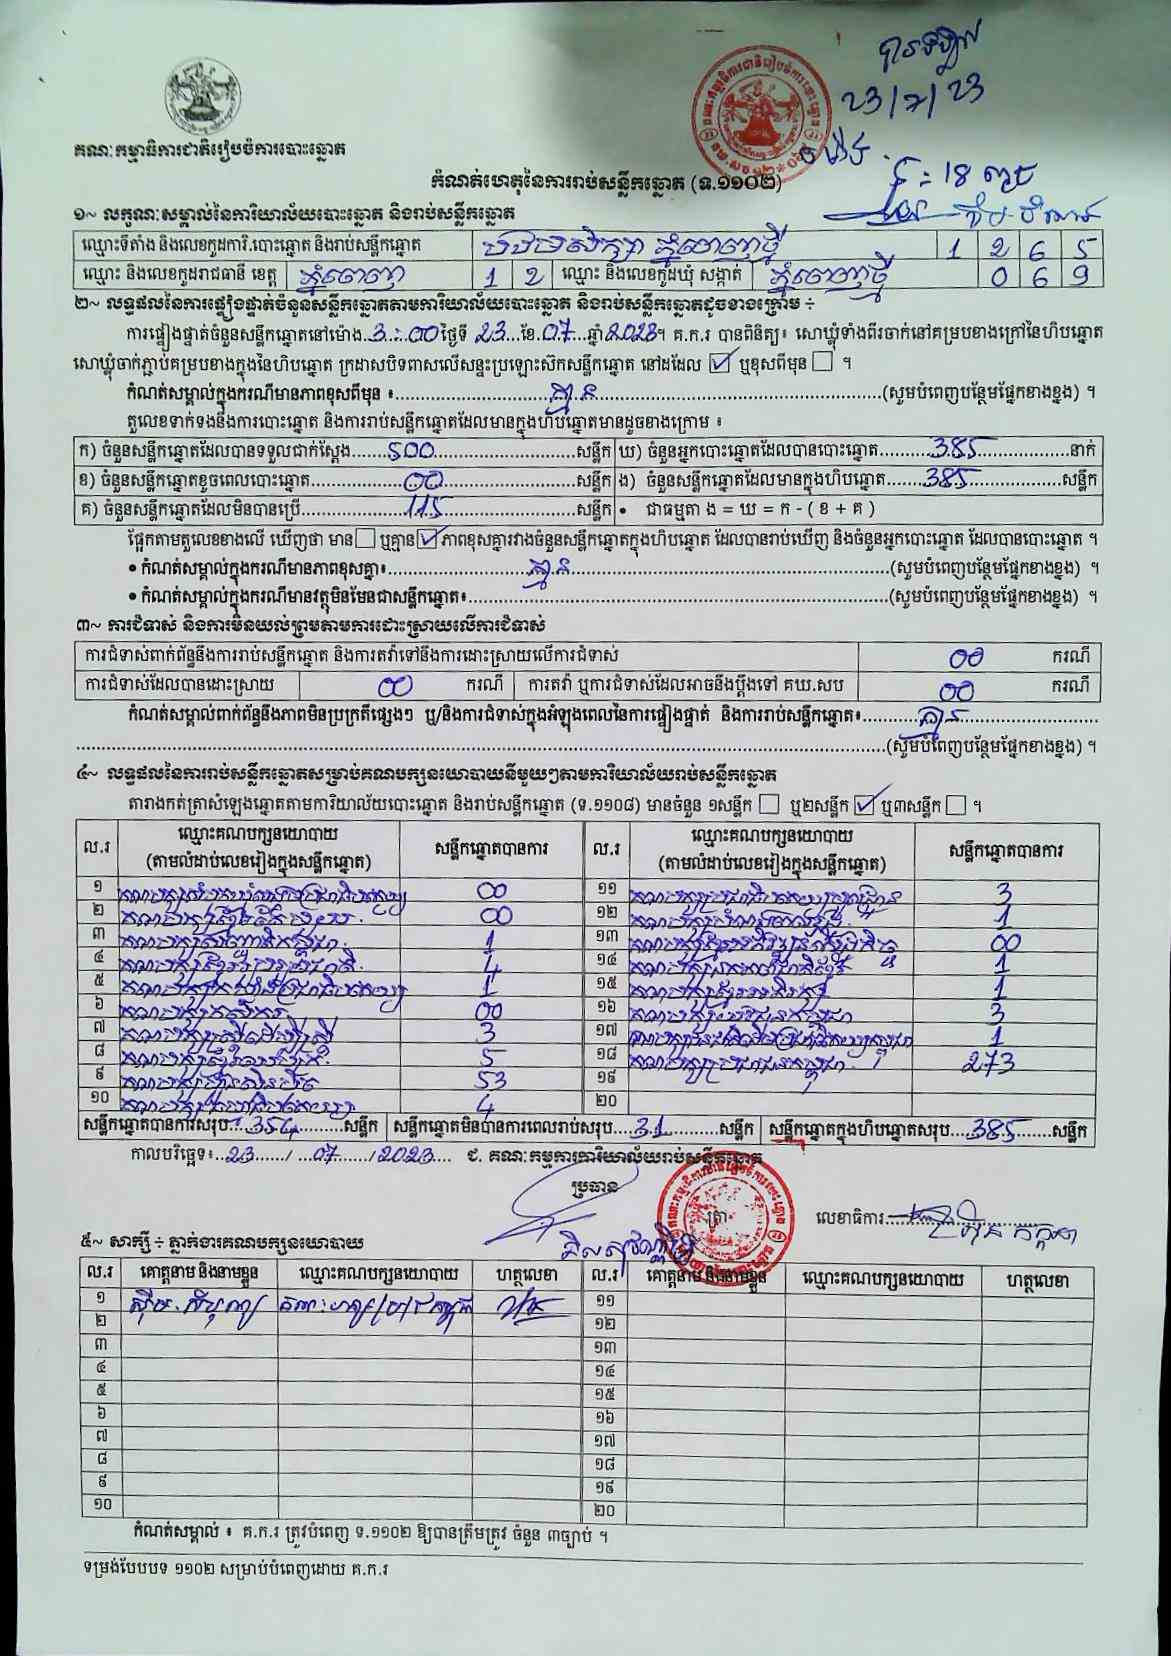 បានទទួល
23/7/23
ម៉ោង:
គណៈកម្មាធិការជាតិរៀបចំការបោះឆ្នោត
កំណត់ហេតុនៃការរាប់សន្លឹកឆ្នោត (ទ.១១០២)
១~ លក្ខណៈសម្គាល់នៃការិយាល័យបោះឆ្នោត និងរាប់សន្លឹកឆ្នោត
ឈ្មោះទីតាំង និងលេខកូដការិ.បោះឆ្នោត និងរាប់សន្លឹកឆ្នោត បឋមសិក្សា ភ្នំពេញថ្មី 1 2 6 5
ឈ្មោះ និងលេខកូដរាជធានី ខេត្ត ភ្នំពេញ 1 2 ឈ្មោះ និងលេខកូដឃុំ សង្កាត់ ភ្នំពេញថ្មី 0 6 9
២~ លទ្ធផលនៃការផ្ទៀងផ្ទាត់ចំនួនសន្លឹកឆ្នោតតាមការិយាល័យបោះឆ្នោត និងរាប់សន្លឹកឆ្នោតដូចខាងក្រោម ៖
ការផ្ទៀងផ្ទាត់ចំនួនសន្លឹកឆ្នោតនៅម៉ោង 3:00 ថ្ងៃទី 23 ខែ 07 ឆ្នាំ 2023។ គ.ក.រ បានពិនិត្យ៖ សោឃ្លុំទាំងពីរចាក់នៅគម្របខាងក្រៅនៃហិបឆ្នោត
សោឃ្លុំចាក់ភ្ជាប់គម្របខាងក្នុងនៃហិបឆ្នោត ក្រដាសបិទពាសលើសន្ទះប្រឡោះស៊កសន្លឹកឆ្នោត នៅដដែល ☑ ឬខុសពីមុន ☐ ។
កំណត់សម្គាល់ក្នុងករណីមានភាពខុសពីមុន ៖ គ្មាន (សូមបំពេញបន្ថែមផ្នែកខាងខ្នង) ។
តួលេខទាក់ទងនឹងការបោះឆ្នោត និងការរាប់សន្លឹកឆ្នោតដែលមានក្នុងហិបឆ្នោតមានដូចខាងក្រោម ៖
ក) ចំនួនសន្លឹកឆ្នោតដែលបានទទួលជាក់ស្តែង 500 សន្លឹក ឃ) ចំនួនអ្នកបោះឆ្នោតដែលបានបោះឆ្នោត 385 នាក់
ខ) ចំនួនសន្លឹកឆ្នោតខូចពេលបោះឆ្នោត 00 សន្លឹក ង) ចំនួនសន្លឹកឆ្នោតដែលមានក្នុងហិបឆ្នោត 385 សន្លឹក
គ) ចំនួនសន្លឹកឆ្នោតដែលមិនបានប្រើ 115 សន្លឹក • ជាធម្មតា ង = ឃ = ក - ( ខ + គ )
ផ្អែកតាមតួលេខខាងលើ ឃើញថា មាន ☐ ឬគ្មាន ☑ ភាពខុសគ្នារវាងចំនួនសន្លឹកឆ្នោតក្នុងហិបឆ្នោត ដែលបានរាប់ឃើញ និងចំនួនអ្នកបោះឆ្នោត ដែលបានបោះឆ្នោត ។
• កំណត់សម្គាល់ក្នុងករណីមានភាពខុសគ្នា៖ គ្មាន (សូមបំពេញបន្ថែមផ្នែកខាងខ្នង) ។
• កំណត់សម្គាល់ក្នុងករណីមានវត្ថុមិនមែនជាសន្លឹកឆ្នោត៖ (សូមបំពេញបន្ថែមផ្នែកខាងខ្នង) ។
៣~ ការជំទាស់ និងការមិនយល់ព្រមតាមការដោះស្រាយលើការជំទាស់
ការជំទាស់ពាក់ព័ន្ធនឹងការរាប់សន្លឹកឆ្នោត និងការតវ៉ាទៅនឹងការដោះស្រាយលើការជំទាស់ 00 ករណី
ការជំទាស់ដែលបានដោះស្រាយ 00 ករណី ការតវ៉ា ឬការជំទាស់ដែលអាចនឹងប្តឹងទៅ គឃ.សប 00 ករណី
កំណត់សម្គាល់ពាក់ព័ន្ធនឹងភាពមិនប្រក្រតីផ្សេងៗ ឬ/និងការជំទាស់ក្នុងអំឡុងពេលនៃការផ្ទៀងផ្ទាត់ និងការរាប់សន្លឹកឆ្នោត៖ គ្មាន
(សូមបំពេញបន្ថែមផ្នែកខាងខ្នង) ។
៤~ លទ្ធផលនៃការរាប់សន្លឹកឆ្នោតសម្រាប់គណបក្សនយោបាយនីមួយៗតាមការិយាល័យរាប់សន្លឹកឆ្នោត
តារាងកត់ត្រាសំឡេងឆ្នោតតាមការិយាល័យបោះឆ្នោត និងរាប់សន្លឹកឆ្នោត (ទ.១១០៨) មានចំនួន ១សន្លឹក ☐ ឬ២សន្លឹក ☑ ឬ៣សន្លឹក ☐ ។
ល.រ ឈ្មោះគណបក្សនយោបាយ (តាមលំដាប់លេខរៀងក្នុងសន្លឹកឆ្នោត) សន្លឹកឆ្នោតបានការ ល.រ ឈ្មោះគណបក្សនយោបាយ (តាមលំដាប់លេខរៀងក្នុងសន្លឹកឆ្នោត) សន្លឹកឆ្នោតបានការ
១ 00 ១១ 3
២ 00 ១២ 1
៣ 1 ១៣ 00
៤ 4 ១៤ 1
៥ 1 ១៥ 1
៦ គណបក្សកសិករ 00 ១៦ 3
៧ គណបក្សស្ត្រីដើម្បីស្ត្រី 3 ១៧ 1
៨ គណបក្សខ្មែររួបរួមជាតិ 5 ១៨ គណបក្សប្រជាជនកម្ពុជា 273
៩ គណបក្សហ៊្វុនស៊ិនប៉ិច 53 ១៩
១០ 4 ២០
សន្លឹកឆ្នោតបានការសរុប: 354 សន្លឹក សន្លឹកឆ្នោតមិនបានការពេលរាប់សរុប 31 សន្លឹក សន្លឹកឆ្នោតក្នុងហិបឆ្នោតសរុប 385 សន្លឹក
កាលបរិច្ឆេទ៖ 23 / 07 / 2023 ជ. គណៈកម្មការការិយាល័យរាប់សន្លឹកឆ្នោត
ប្រធាន
ត្រា
លេខាធិការ
៥~ សាក្សី ÷ ភ្នាក់ងារគណបក្សនយោបាយ
ល.រ គោត្តនាម និងនាមខ្លួន ឈ្មោះគណបក្សនយោបាយ ហត្ថលេខា ល.រ គោត្តនាម និងនាមខ្លួន ឈ្មោះគណបក្សនយោបាយ ហត្ថលេខា
១ ១១
២ ១២
៣ ១៣
៤ ១៤
៥ ១៥
៦ ១៦
៧ ១៧
៨ ១៨
៩ ១៩
១០ ២០
កំណត់សម្គាល់ ៖ គ.ក.រ ត្រូវបំពេញ ទ.១១០២ ឱ្យបានត្រឹមត្រូវ ចំនួន ៣ច្បាប់ ។
ទម្រង់បែបបទ ១១០២ សម្រាប់បំពេញដោយ គ.ក.រ